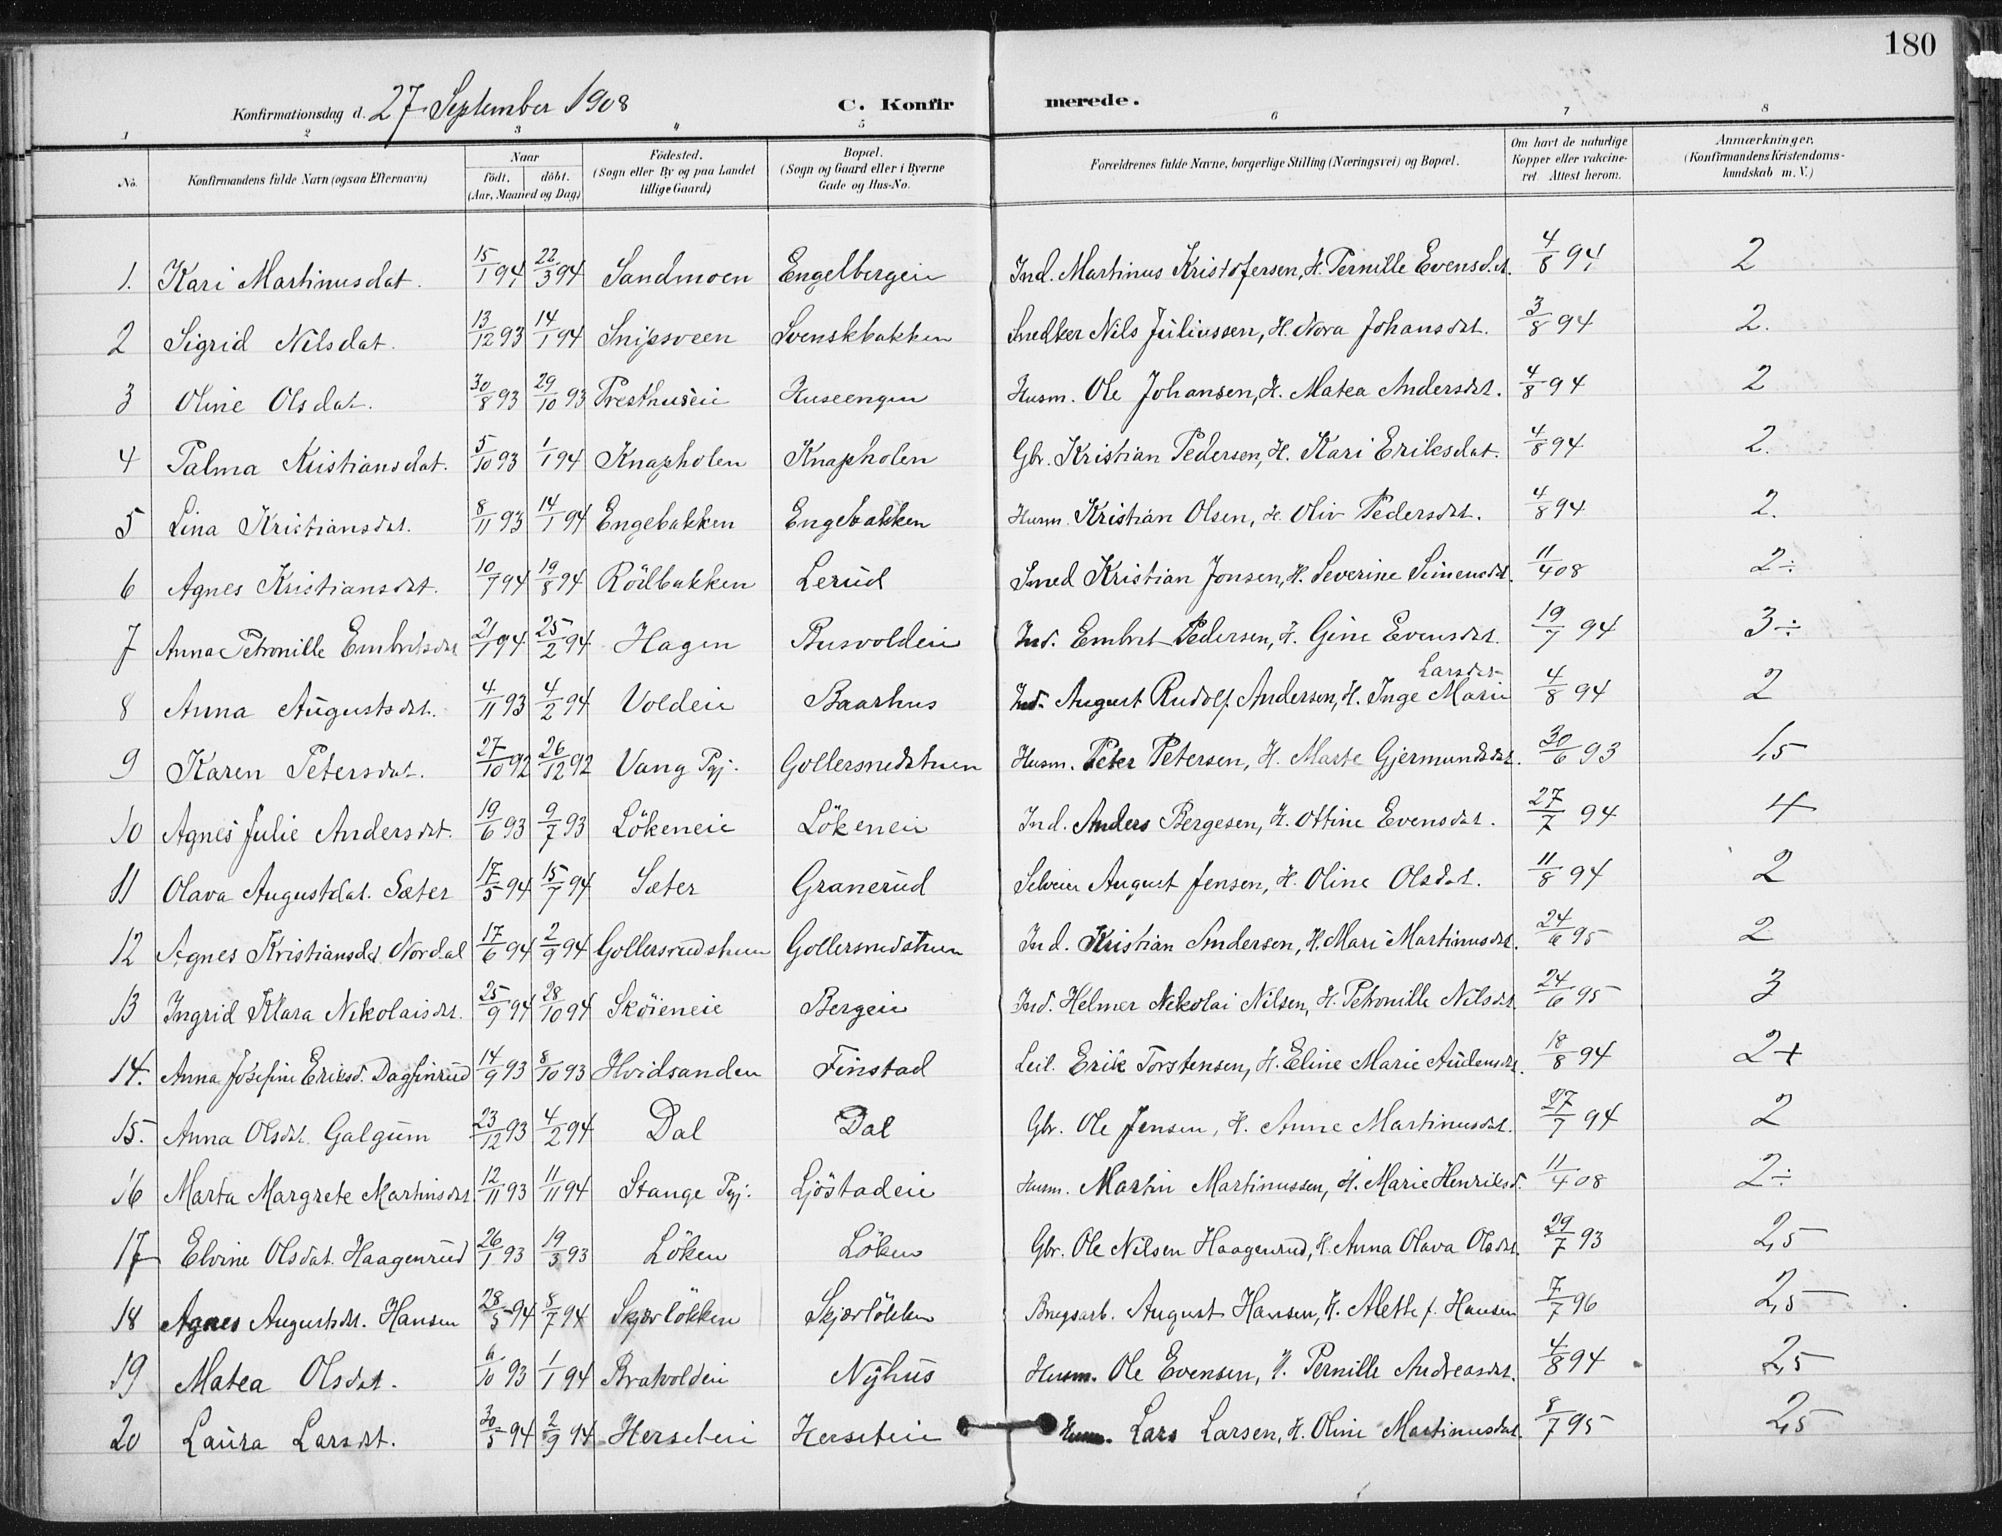 180
Konfirmationsdag d. 27 September 1908 C. Konfirmerede.
1 2 3 4 5 6 7 8
No. Konfirmandens fulde Navn (ogsaa Efternavn) Naar født. døbt. (Aar, Maaned og Dag) Fødested. (Sogn eller By og paa Landet tillige Gaard) Bopæl. (Sogn og Gaard eller i Byerne Gade og Hus-No. Forældrenes fulde Navne, borgerlige Stilling (Næringsvei) og Bopæl. Om havt de naturlige Kopper eller vakcineret. Attest herom. Anmærkninger. (Konfirmandens Kristendomskundskab m. V.)
1. Kari Martinusdat. 15/1 94 22/3 94 Sandmoen Engelbergeie Ind. Martinus Kristofersen, H. Pernille Evensdat. 4/8 94 2
2 Sigrid Nilsdat. 13/12 93 14/1 94 Snipsveen Svenskbakken Snedker Nils Juliussen, H. Nora Johansdat. 3/8 94 2.
3 Oline Olsdat. 30/8 93 29/10 93 Presthuseie Huseengen Husm. Ole Johansen, H. Matea Andersdat. 4/8 94 2
4 Palma Kristiansdat. 5/10 93 1/1 94 Knapholen Knapholen Gbr. Kristian Pedersen, H. Kari Eriksdat. 4/8 94 2.
5 Lina Kristiansdat. 8/11 93 14/1 94 Engebakken Engebakken Husm. Kristian Olsen, H. Oliv Pedersdat. 4/8 94 2.
6 Agnes Kristiansdat. 10/7 94 19/8 94 Rödbakken Lerud Smed Kristian Jonsen, H. Severine Simensdat. 11/4 08 2÷
7 Anna Petronille Embretsdat 21/1 94 25/2 94 Hagen Busvoldeie Ind. Embret Pedersen, H. Gine Evensdat. 19/7 94 3÷
8 Anna Augustsdat. 4/11 93 4/2 94 Voldeie Baarhus Ind. August Rudolf Andersen, H. Inge Marie Larsdat 4/8 94 2
9 Karen Petersdat. 27/10 92 26/12 92 Vang Pgj. Gollersrudstuen Husm. Peter Petersen, H. Marte Gjermundsdat. 30/6 93 1,5
10 Agnes Julie Andersdat. 19/6 93 9/7 93 Lökeneie Lökeneie Ind. Anders Bergesen, H. Ottine Evensdat. 27/7 94 4
11 Olava Augustdat. Sæter 17/5 94 15/7 94 Sæter Granerud Selveier August Jensen, H. Oline Olsdat. 11/8 94 2
12 Agnes Kristiansdat Nordal 17/6 94 2/9 94 Gollersrudstuen Gollersrudstuen Ind. Kristian Andersen, H. Mari Martinusdat. 24/6 95 2
13 Ingrid Klara Nikolaisdat. 25/9 94 28/10 94 Sköieneie Bergeie Ind. Helmer Nikolai Nilsen, H. Petronille Nilsdat. 24/6 95 3
14. Anna Josefine Eriksd. Dagfinrud 14/9 93 8/10 93 Hvidsanden Finstad Leil. Erik Torstensen, H. Eline Marie Audensdat. 18/8 94 2+
15. Anna Olsdat. Galgum 23/12 93 4/2 94 Dal Dal Gbr. Ole Jensen, H. Anne Martinusdat. 27/7 94 2
16 Marta Margrete Martinsdat 12/11 93 11/11 94 Stange Pgj. Ljöstadeie Husm. Martin Martinussen, H. Marie Henriksd. 11/4 08 2÷
17 Elvine Olsdat. Haagenrud 26/1 93 19/3 93 Löken Löken Gbr. Ole Nilsen Haagenrud, H. Anna Olava Olsdat. 29/7 93 2,5
18 Agnes Augustsdat. Hansen 28/5 94 8/7 94 Skjærlökken Skjærlökken Brugsarb. August Hansen, H. Alette f. Hansen 7/7 96 2,5
19 Matea Olsdat. 6/10 93 1/1 94 Bratvoldeie Nyhus Husm. Ole Evensen, H. Pernille Andreasdat. 4/8 94 2,5
20 Laura Larsdat. 30/5 94 2/9 94 Herseteie Herseteie Husm. Lars Larsen, H. Oline Martinusdat. 8/7 95 2,5